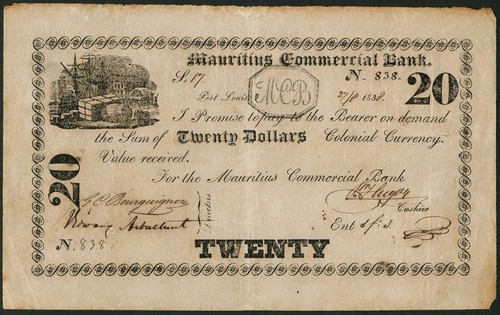 Mauritius Commercial Bank.
N. 838. 20
MCB
Port Louis 27/8 1838.
I Promise to pay to the Bearer on demand
the Sum of Twenty Dollars Colonial Currency.
Value received.
For the Mauritius Commercial Bank
20
G. C. Bourguignon
Edward Arbuthnot
Directors
Cashier
Ent d f.
N. 838.
TWENTY